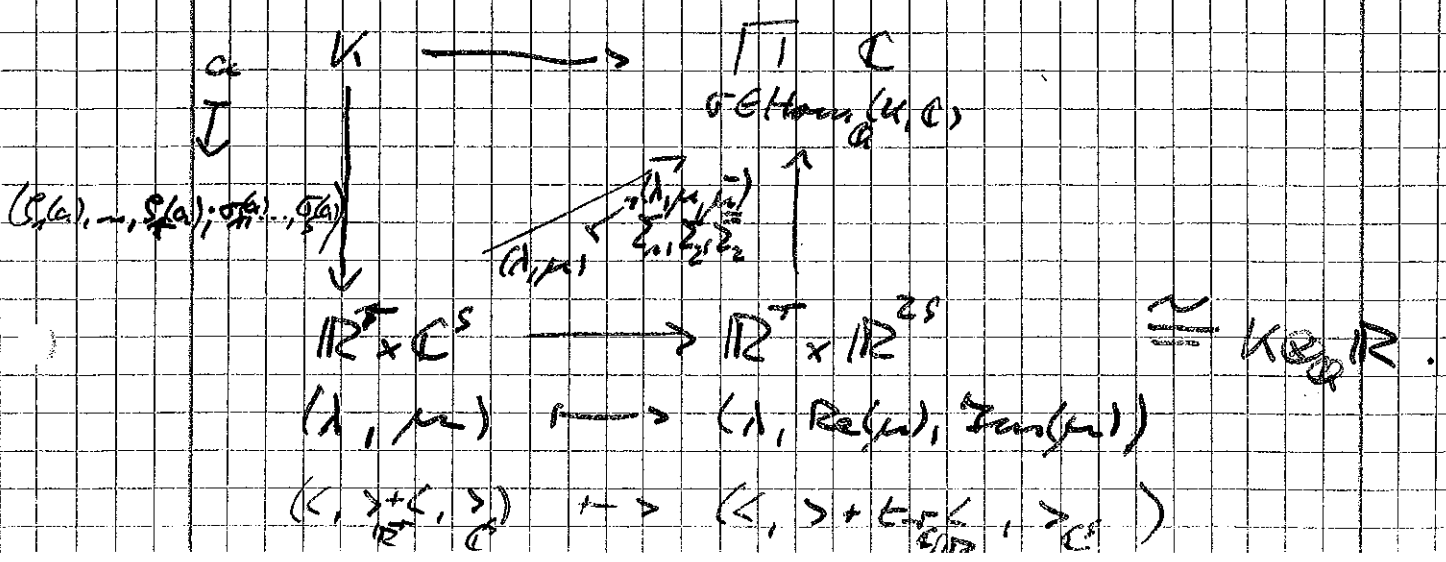 a K ⟶ ∏ ℂ
σ∈Hom_ℚ(K,ℂ)
(ρ₁(a), …, ρ_r(a); σ₁(a), …, σ_s(a))
(λ, μ, μ̄)
(λ, μ)
ℝ^r × ℂ^s ⟶ ℝ^r × ℝ^{2s} ≅ K⊗_ℚ ℝ.
(λ, μ) ⟼ (λ, Re(μ), Im(μ))
(<,>_{ℝ^r} + <,>_{ℂ^s}) ⟼ (<,> + tr_{ℂ/ℝ}<,>_{ℂ^s})